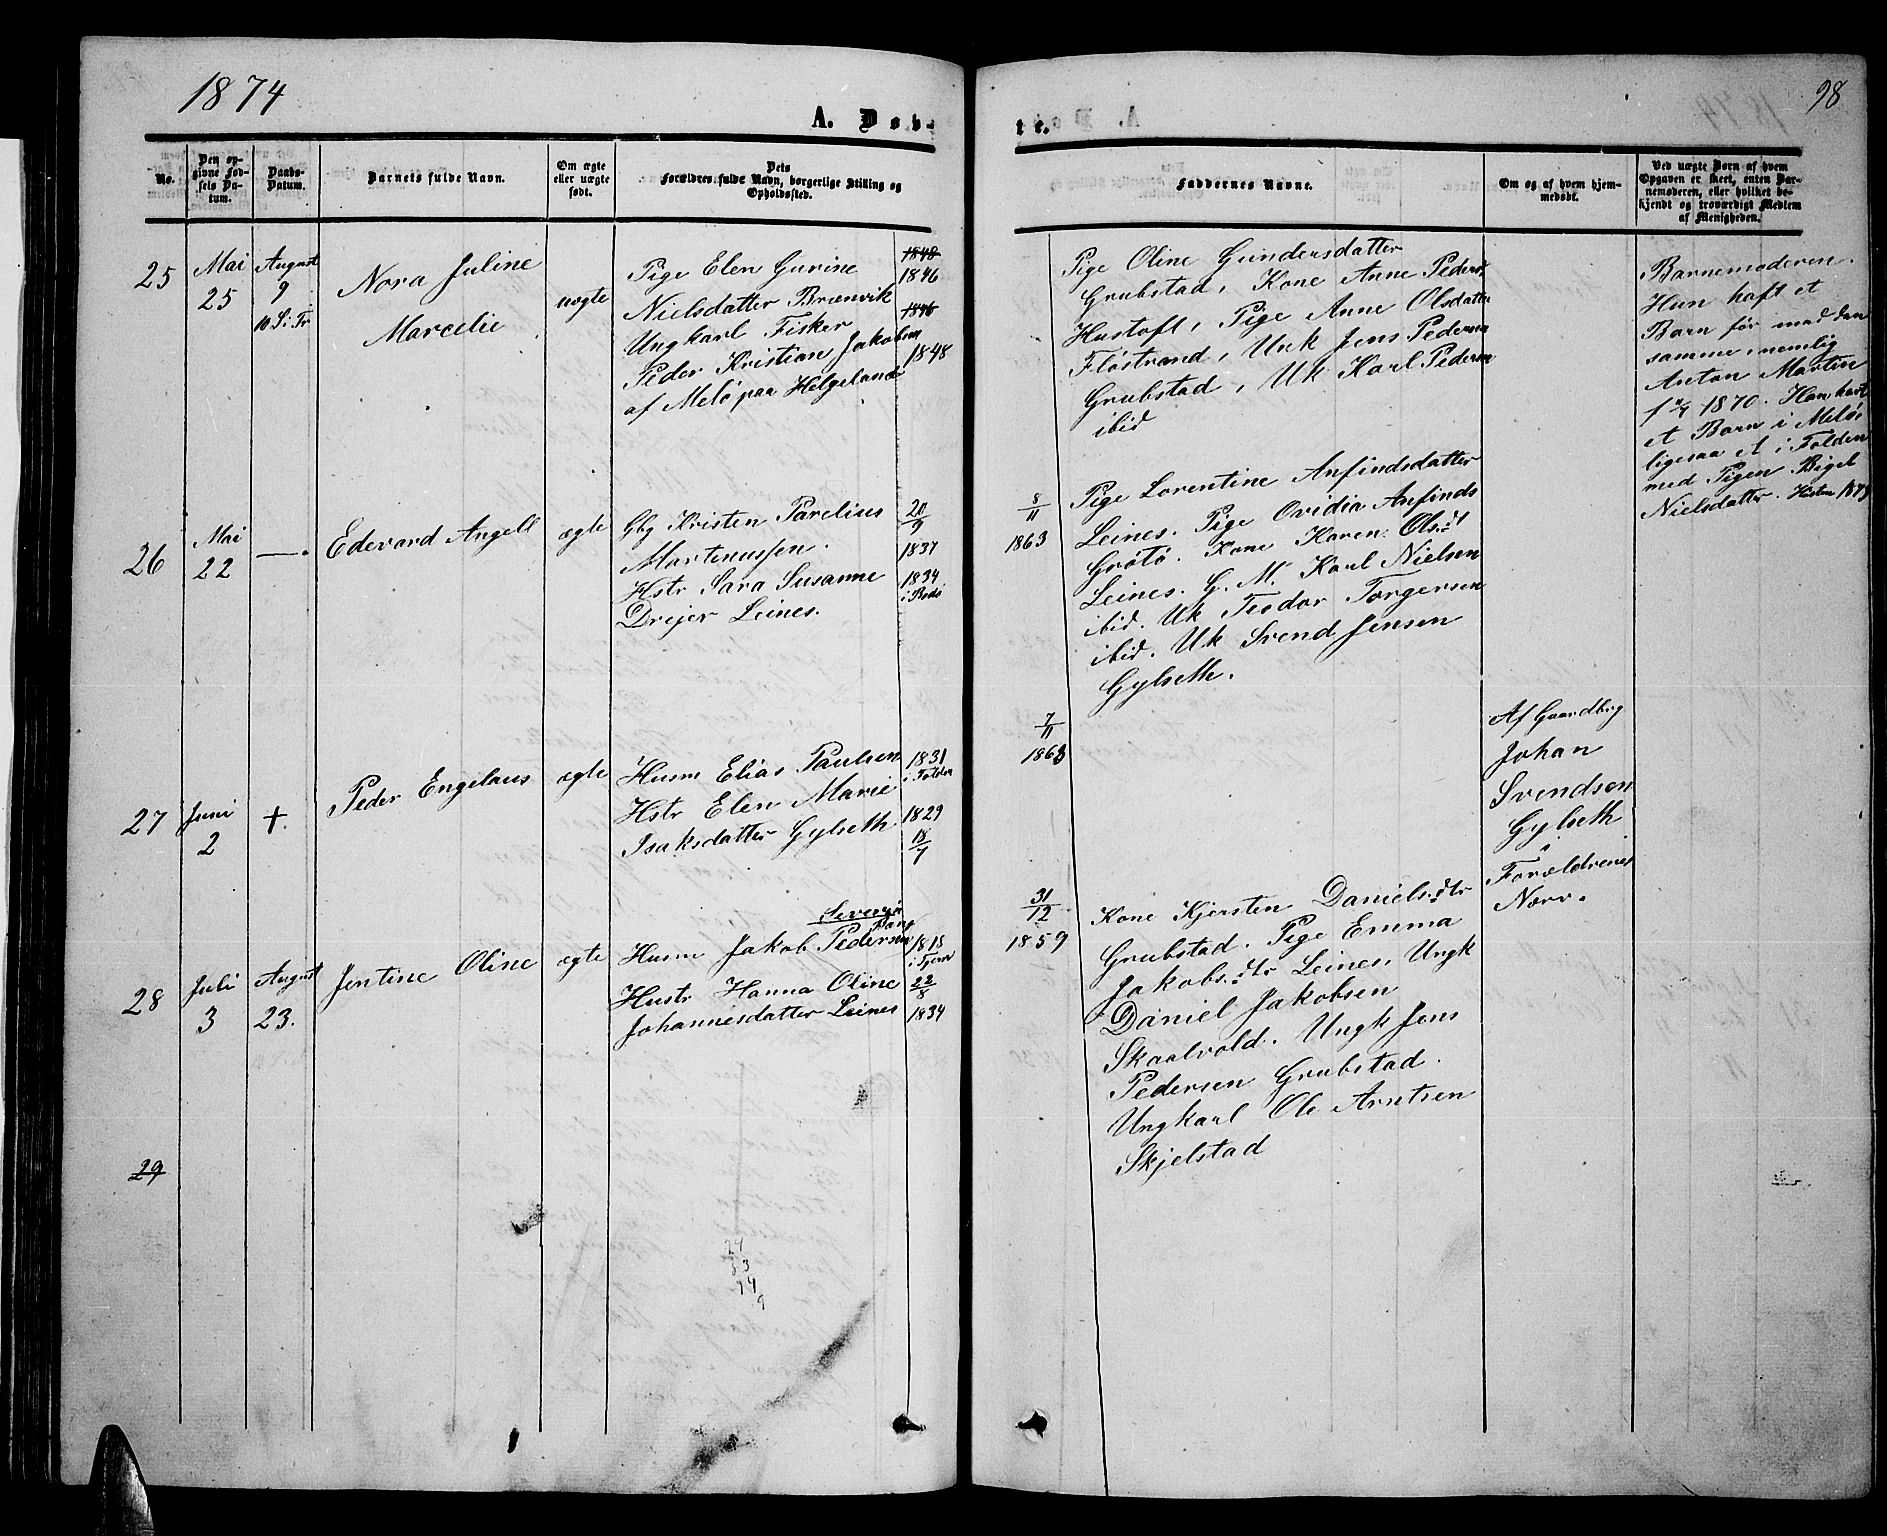 1874
98
A. Døb-
te.
No.
Den op-
givne Fød-
sels Da-
tum.
Daabs-
Datum.
Barnets fulde Navn.
Om ægte
eller uægte
født.
Dets
Forældres fulde Navn, borgerlige Stilling og
Opholdssted.
Faddernes Navne.
Om og af hvem hjem-
medøbt.
Ved uægte Børn af hvem
Opgaven er skeet, enten Bar-
nemoderen, eller hvilket be-
kjendt og troværdigt Medlem
af Menigheden.
25
Mai
25
August
9
10 S. i Tr.
Nora Juline
Marcelie
uægte
Pige Elen Gurine
Nielsdatter Brænvik
Ungkarl Fisker
Peder Kristian Jakobsen
af Melø paa Helgeland
1848
1846
1846
1848
Pige Oline Gundersdatter
Grubstad, Kone Anne Peders
Hustoft, Pige Anne Olsdatter
Fløstrand, Unk Jens Pedersen
Grubstad, Uk Karl Pedersen
ibid
Barnemoderen.
Hun haft et
Barn før med den
samme, nemlig
Anton Martin
1870. Han havt
et Barn i Melø,
ligesaa et i Folden
med Pigen Birgit
Nielsdatter
26
Mai
22
—.
Edevard Angell
ægte
Gbg Kristen Parelius
Martinussen.
Hstr Sara Susanne
Drejer Leines.
20/9
1837
1834
i Bodø
8/11
1863
Pige Lorentine Anfindsdatter
Leines. Pige Ovidia Anfinds
Grøtø. Kone Karen Olsdt
Leines. G. M. Karl Nielsen
ibid. Uk Teodor Torgersen
ibid. Uk Svend Jensen
Gylseth.
27
Juni
2
+
Peder Engelaus
ægte
Husm Elias Paulsen
Hstr Elen Marie
Isaksdatter Gylseth
1831
i Folden
1829
18/7
7/11
1863
Af Gaardbrg
Johan
Svendsen
Gylseth
i
Forældrenes
Nærv.
28
Juli
3
August
23.
Jentine Oline
ægte
Husm Jakob Pedersen
Hustr Hanna Oline
Johannesdatter Leines
1818
22/8
1834
31/12
1859
Kone Kjersten Danielsdtr
Grubstad. Pige Emma
Jakobsdtr Leines, Ungk
Daniel Jakobsen
Skaalvold. Ungk Jens
Pedersen Grubstad.
Ungkarl Ole Arntsen
Skjelstad
29